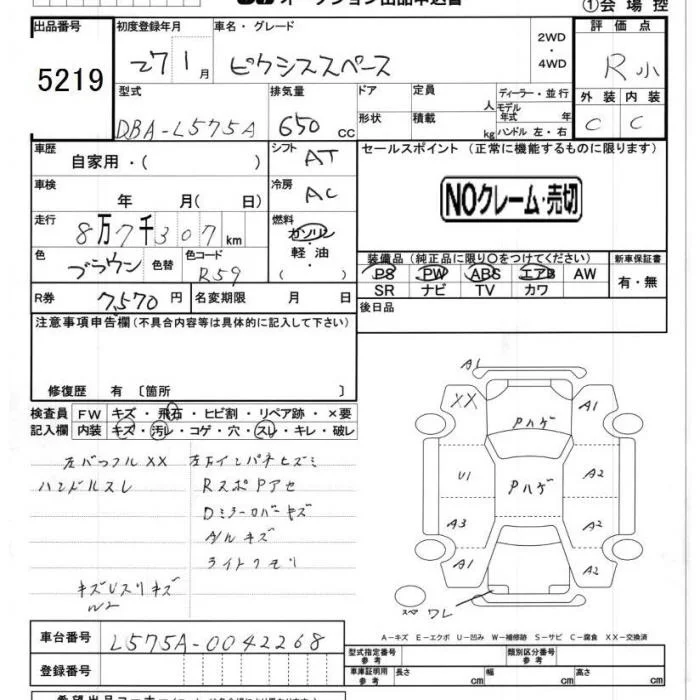 出品番号
5219
初度登録年月
27 1月
車名・グレード
ピクシススペース
2WD
・
4WD
①会場控
評価点
R小
型式
DBA-L575A
排気量
650cc
ドア
形状
定員
人
積載
kg
ディーラー・並行
モデル年式 年
ハンドル 左・右
外装
内装
C
C
車歴
自家用・( )
シフト
AT
セールスポイント (正常に機能するものに限ります)
NOクレーム・売切
車検
年 月( 日)
冷房
AC
走行
8万7千307km
燃料
ガソリン
・
軽油
・
( )
色
ブラウン
色替
色コード
R59
装備品(純正品に限り○をつけてください)
PS PW ABS エアB AW
SR ナビ TV カワ
新車保証書
有・無
R券
7,570円
名変期限 月 日
後日品
注意事項申告欄(不具合内容等は具体的に記入して下さい)
修復歴 有 〔箇所 〕
検査員
記入欄
FW キズ・飛石・ヒビ割・リペア跡・×要
内装 キズ・汚レ・コゲ・穴・スレ・キレ・破レ
左バッフルXX
ハンドルスレ
キズUスリキズ
W2
RスポPアセ
Dミラーカバーキズ
A/Wキズ
ライトクモリ
A1
XX
A1
Pハゲ
U1
A2
Pハゲ
A3
A2
A1
A2
スペ
ワレ
A-キズ E-エクボ U-凹み W-補修跡 S-サビ C-腐食 XX-交換済
車台番号
L575A-0042268
登録番号
型式指定番号
参考
類別区分番号
参考
車庫証明用
参考
長さ cm
幅 cm
高さ cm